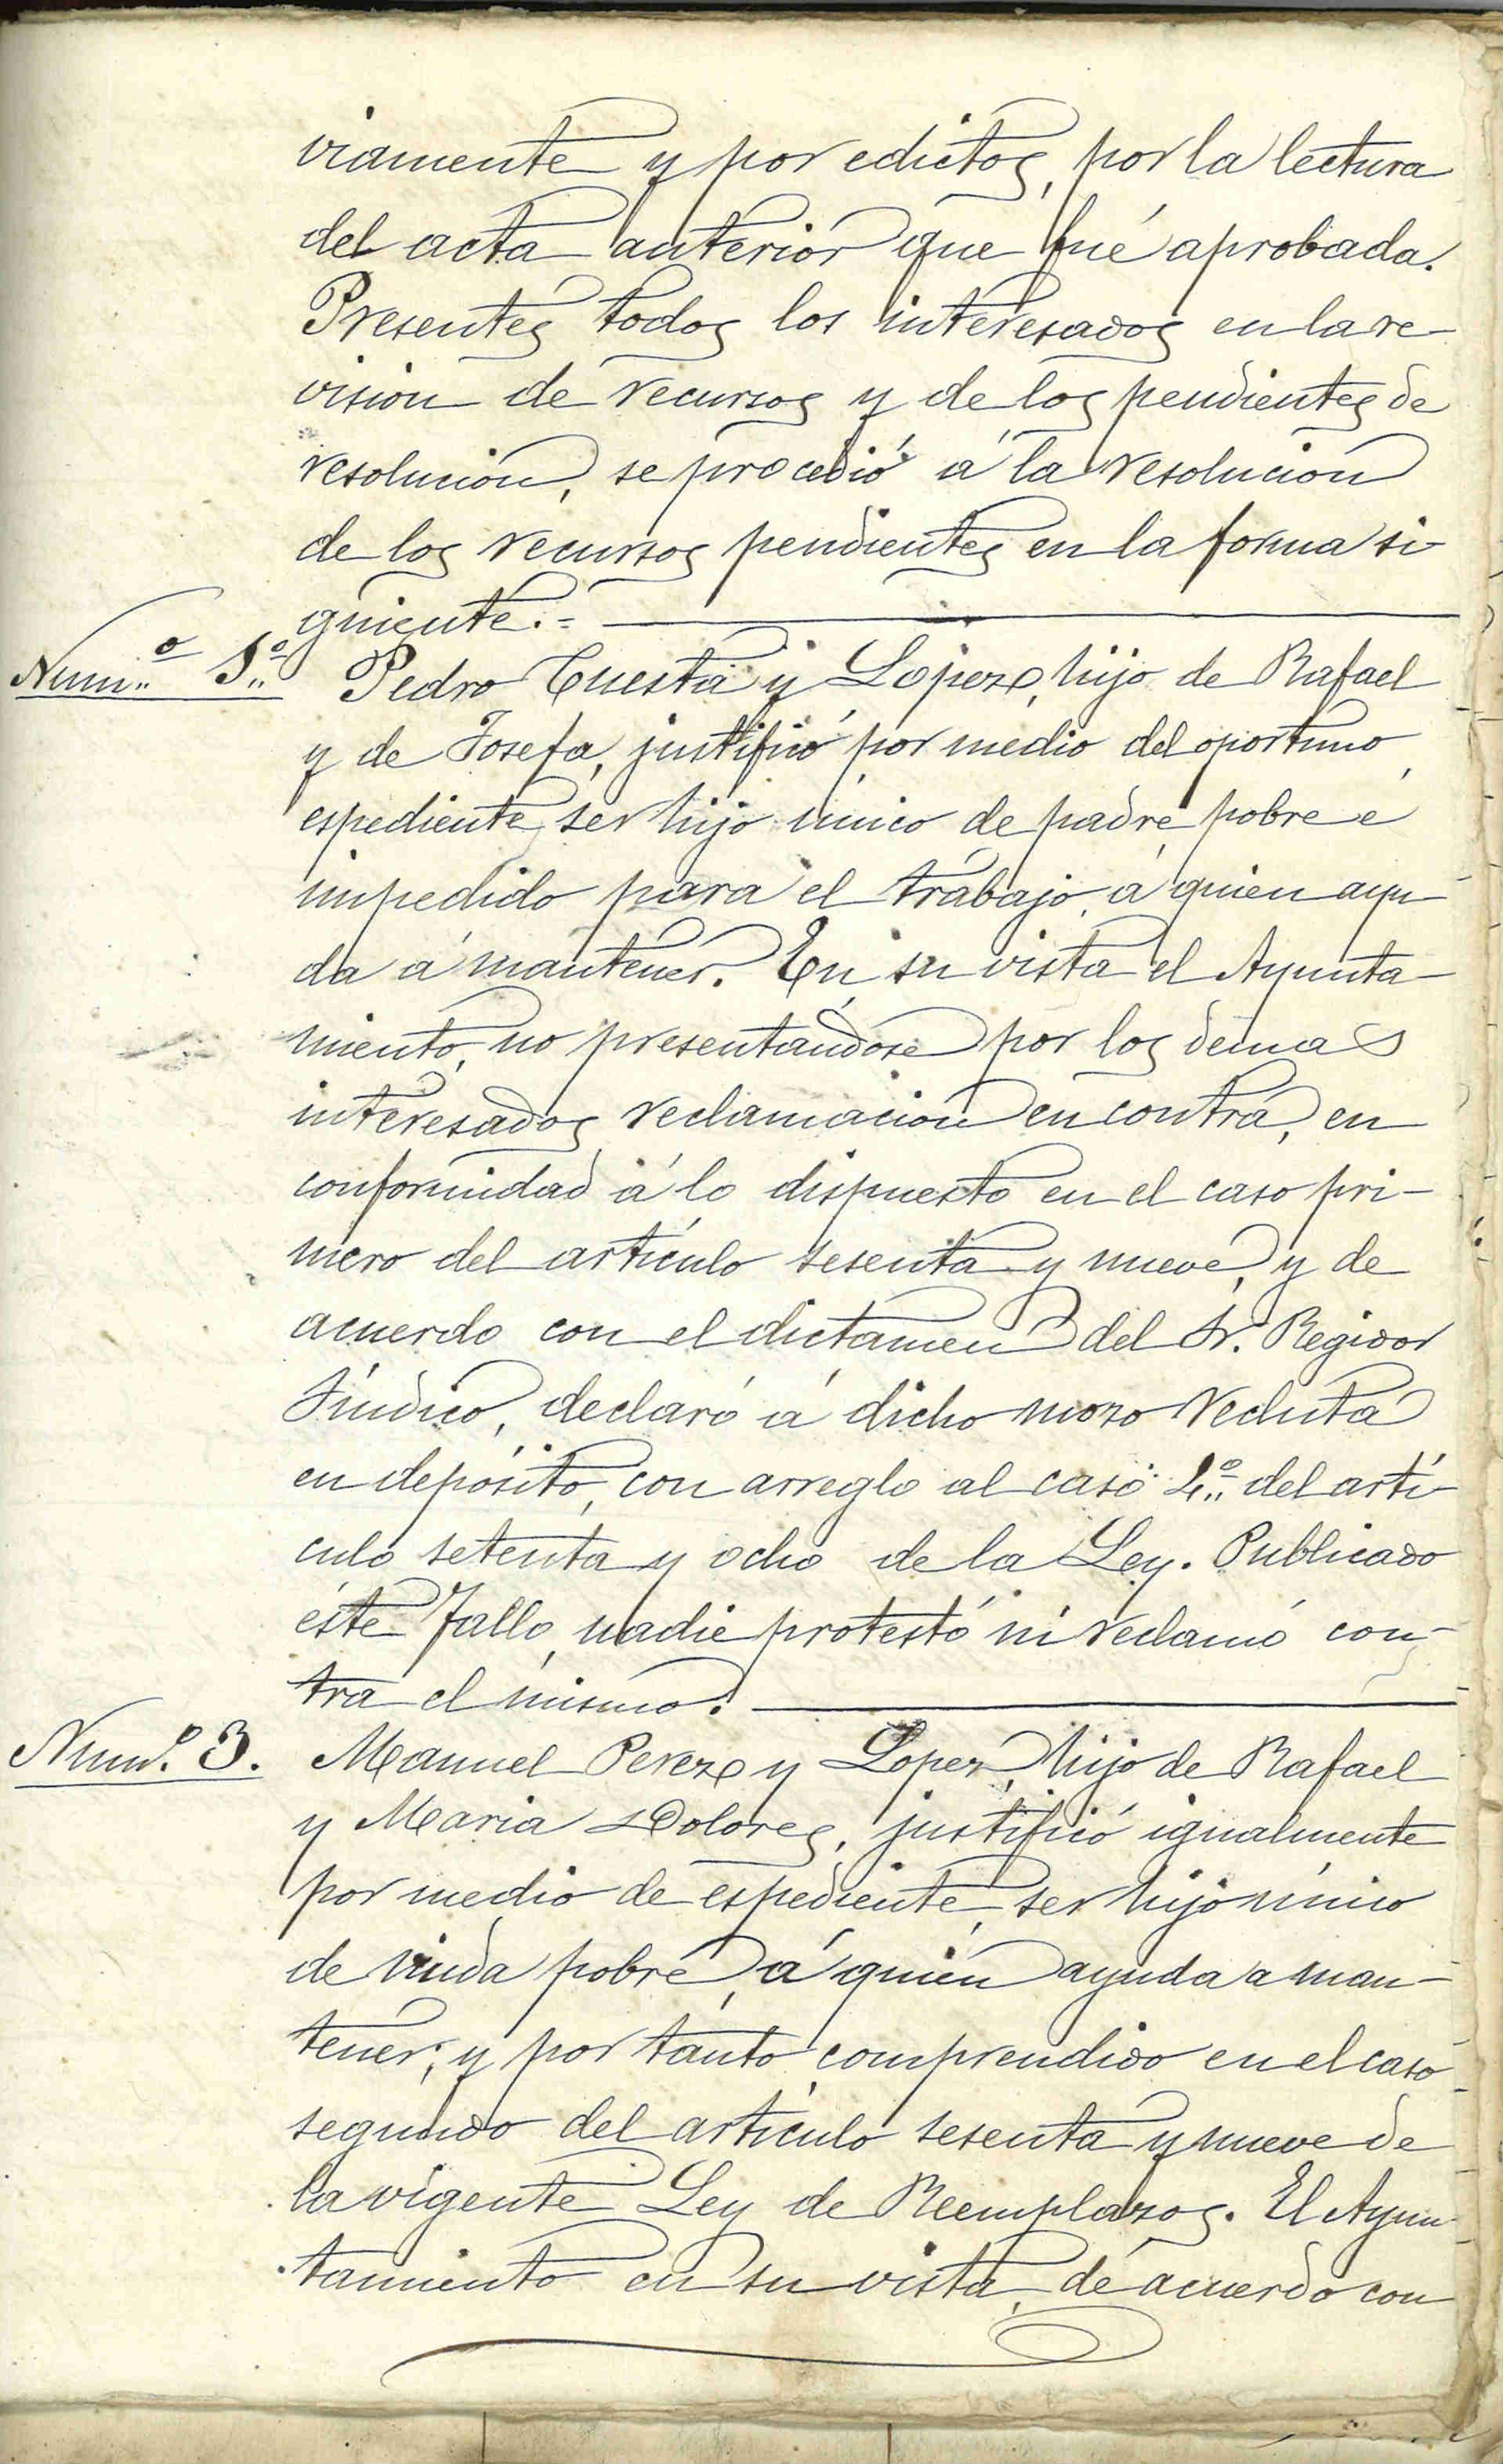 viamente y por edictos, por la lectura
del acta anterior que fué aprobada.
Presentes todos los interesados en la re-
vision de recursos y de los pendientes de
resolución, se procedió á la resolucion
de los recursos pendientes en la forma si-
guiente.=
Num.º 1.º Pedro Cuesta y Lopez, hijo de Rafael
y de Josefa, justificó por medio del oportuno
espediente, ser hijo único de padre pobre é
impedido para el trabajo, á quien ayu-
da á mantener. En su vista el Ayunta-
miento, no presentandose por los demas
interesados reclamacion en contra, en
conformidad á lo dispuesto en el caso pri-
mero del artículo sesenta y nueve, y de
acuerdo con el dictamen del Sr. Regidor
Síndico, declaró á dicho mozo recluta
en depósito, con arreglo al caso 2.º del artí-
culo setenta y ocho de la Ley. Publicado
éste Fallo, nadie protestó ni reclamó con-
tra el mismo.
Num.º 3. Manuel Perez y Lopez, hijo de Rafael
y Maria Dolores, justificó igualmente
por medio de espediente, ser hijo único
de viuda pobre, á quien ayuda a man-
tener; y por tanto, comprendido en el caso
segundo del artículo sesenta y nueve de
la vigente Ley de Reemplazos. El Ayun-
tamiento en su vista, de acuerdo con